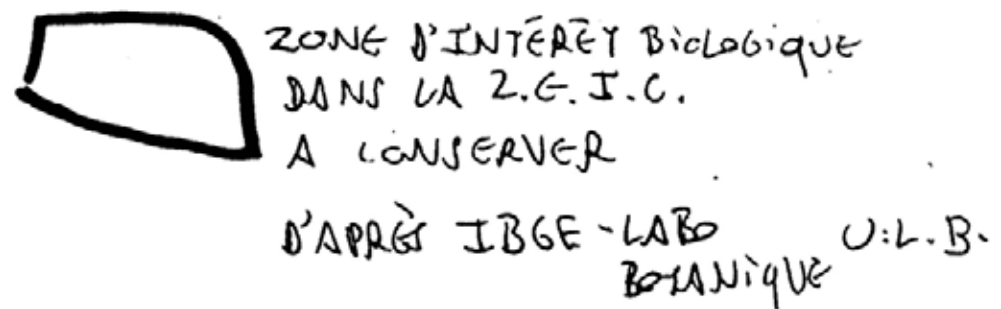 ZONE D'INTÉRÊT BiOLOGiqUE
DANS LA Z.E.I.C.
A CONSERVER
D'APRÈS IBGE-LABO U.L.B.
BOTANiqUE